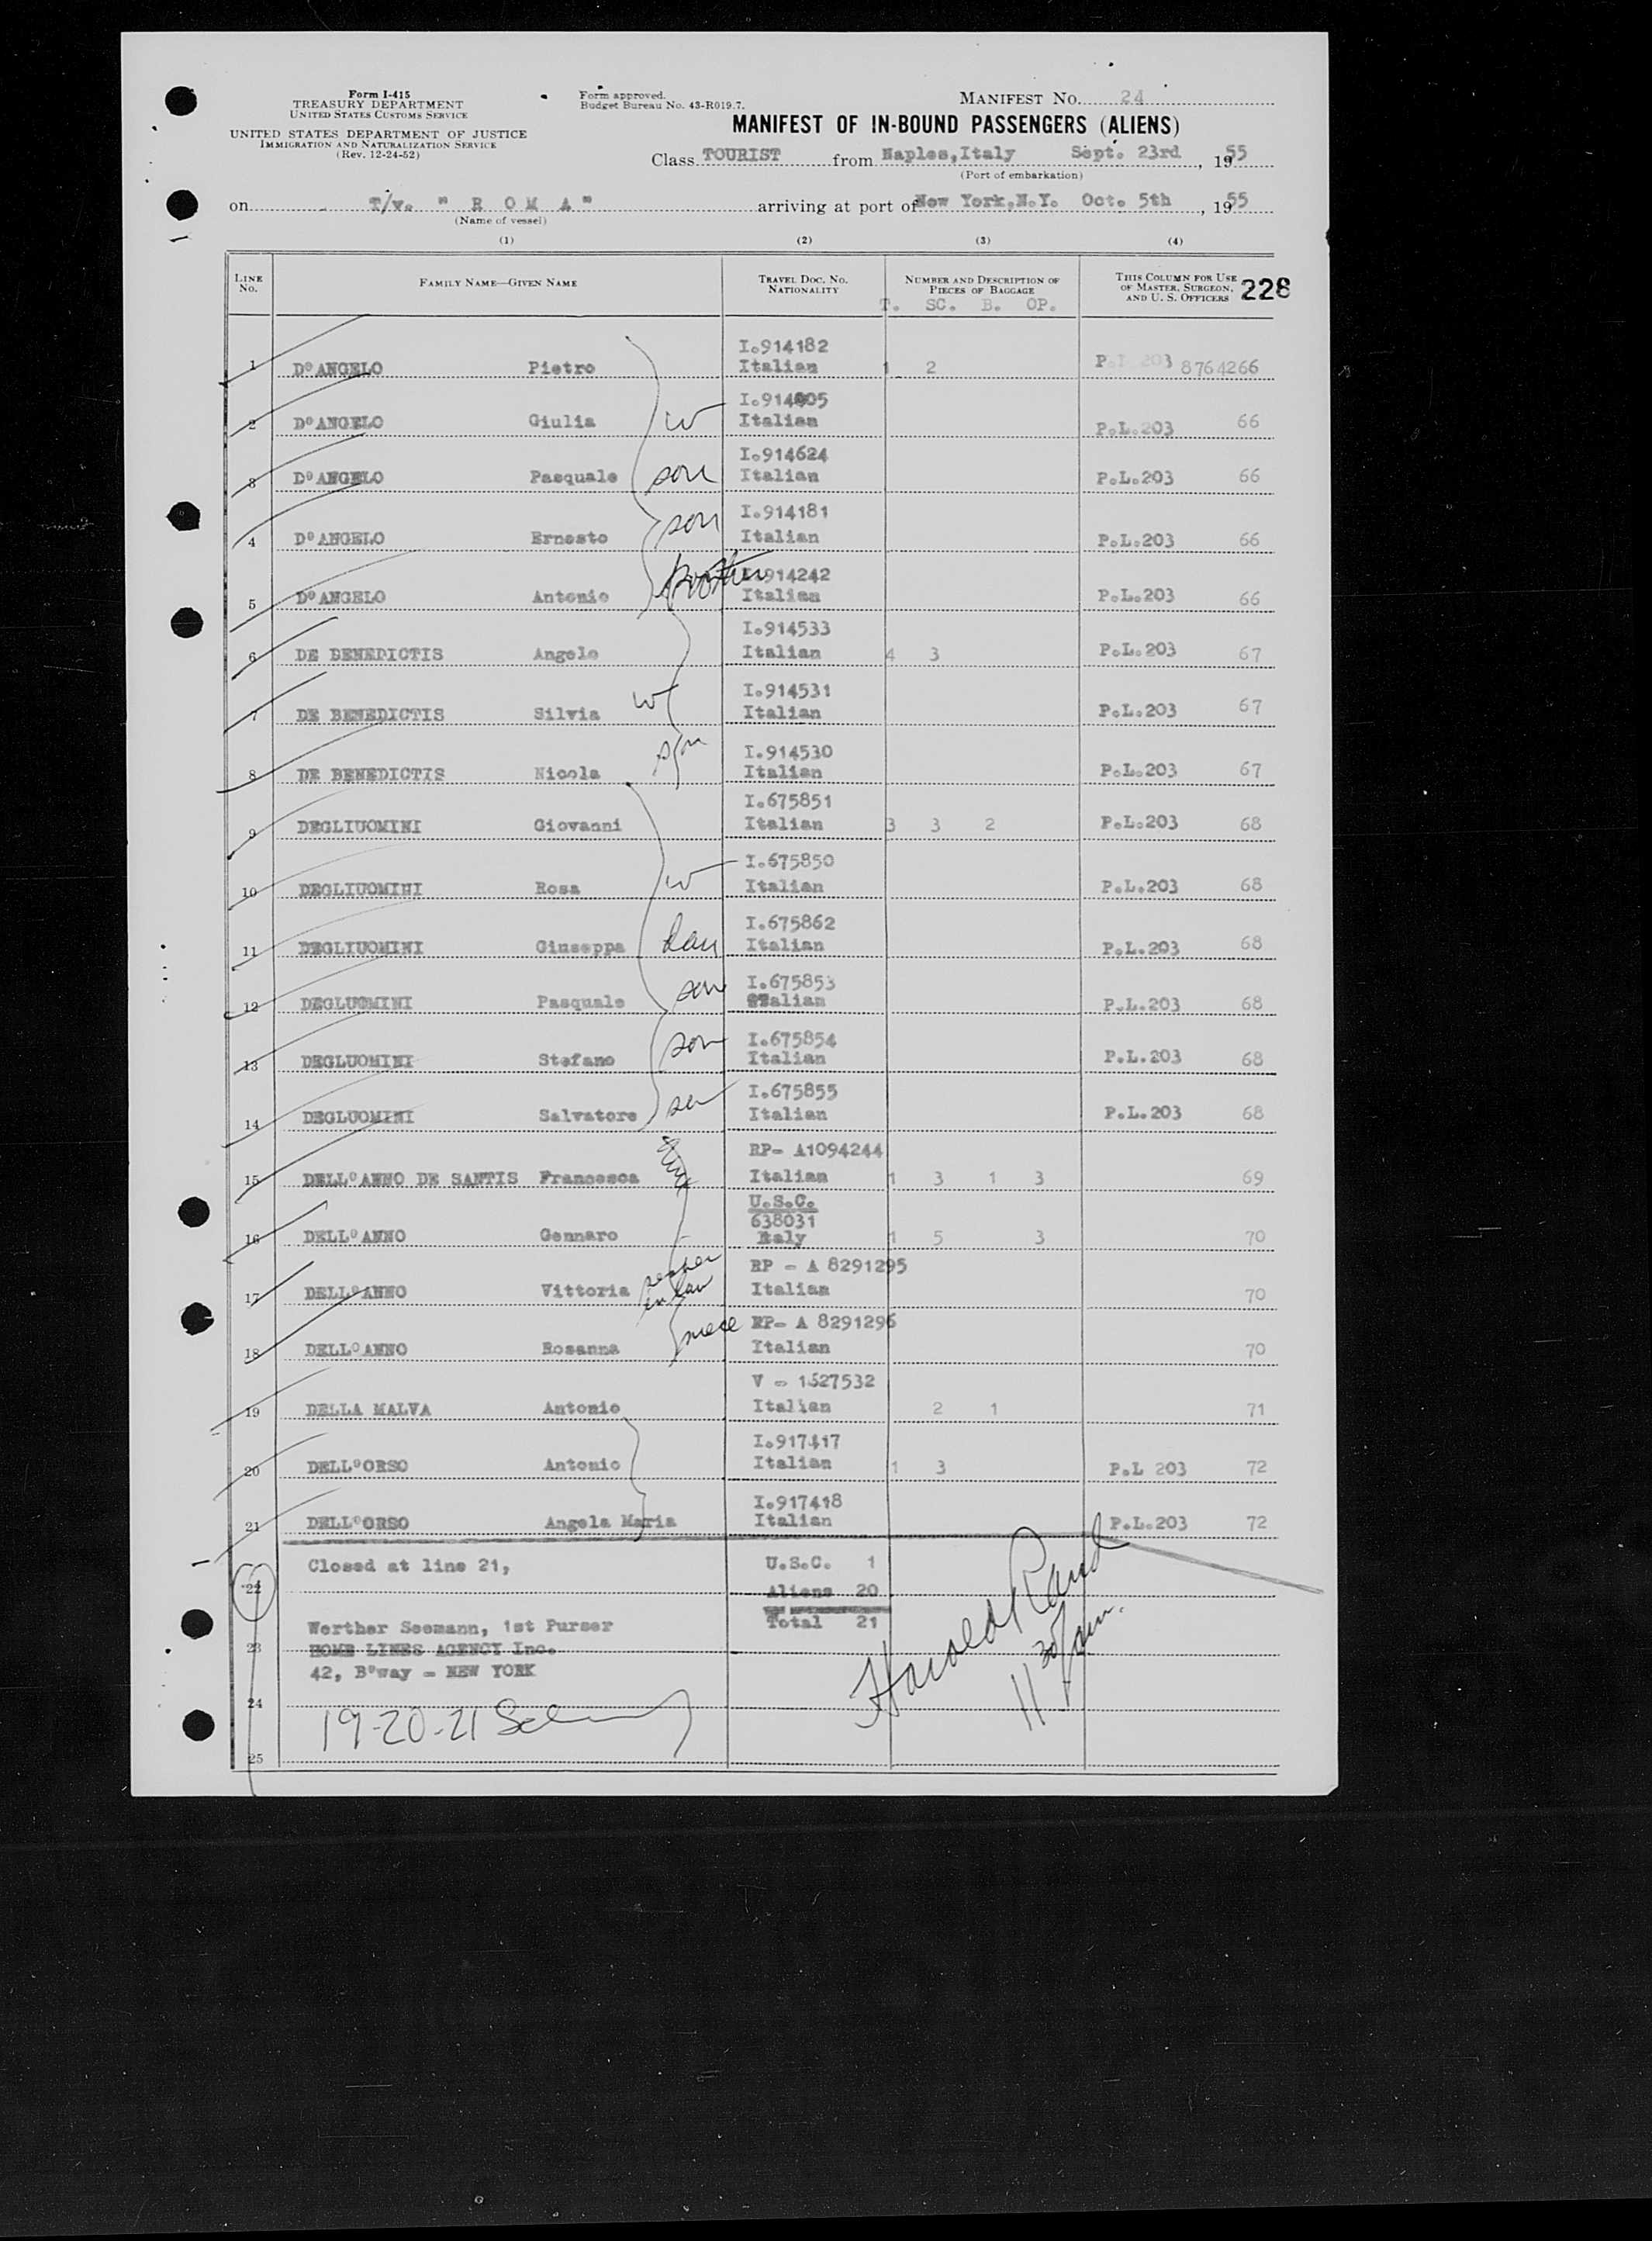 Form I-415
TREASURY DEPARTMENT
UNITED STATES CUSTOMS SERVICE
UNITED STATES DEPARTMENT OF JUSTICE
IMMIGRATION AND NATURALIZATION SERVICE
(Rev. 12-24-52)
Form approved.
Budget Bureau No. 43-R019.7.
MANIFEST No. 24
MANIFEST OF IN-BOUND PASSENGERS (ALIENS)
Class TOURIST from Naples, Italy Sept. 23rd, 1955
(Port of embarkation)
on T/v. " R O M A " arriving at port of New York,N.Y. Oct. 5th, 1955
(Name of vessel)
(1) (2) (3) (4)
LINE No. FAMILY NAME—GIVEN NAME TRAVEL DOC. NO. NATIONALITY NUMBER AND DESCRIPTION OF PIECES OF BAGGAGE THIS COLUMN FOR USE OF MASTER, SURGEON, AND U. S. OFFICERS 228
T. SC. B. OP.
I.914182
1 D'ANGELO Pietro Italian 1 2 P.L. 203 8764266
2 D'ANGELO Giulia w Italian P.L.203 66
I.914624
3 D'ANGELO Pasquale son Italian P.L.203 66
I.914181
4 D'ANGELO Ernesto son Italian P.L.203 66
I.914242
5 D'ANGELO Antonio brother Italian P.L.203 66
I.914533
6 DE BENEDICTIS Angelo Italian 4 3 P.L.203 67
I.914531
7 DE BENEDICTIS Silvia w Italian P.L.203 67
I.914530
8 DE BENEDICTIS Nicola son Italian P.L.203 67
I.675851
9 DEGLIUOMINI Giovanni Italian 3 3 2 P.L.203 68
I.675850
10 DEGLIUOMINI Rosa w Italian P.L.203 68
I.675862
11 DEGLIUOMINI Giuseppa dau Italian P.L.203 68
I.675853
12 DEGLUOMINI Pasquale son Italian P.L.203 68
I.675854
13 DEGLUOMINI Stefano son Italian P.L.203 68
I.675855
14 DEGLUOMINI Salvatore son Italian P.L.203 68
RP- A1094244
15 DELL'ANNO DE SANTIS Francesca Italian 1 3 1 3 69
U.S.C.
638031
16 DELL'ANNO Gennaro Italy 1 5 3 70
RP - A 8291295
17 DELL'ANNO Vittoria in law Italian 70
RP- A 8291296
18 DELL'ANNO Rosanna niece Italian 70
V - 1527532
19 DELLA MALVA Antonio Italian 2 1 71
I.917417
20 DELL'ORSO Antonio Italian 1 3 P.L 203 72
I.917418
21 DELL'ORSO Angela Maria Italian P.L.203 72
Closed at line 21, U.S.C. 1
22 Aliens 20
Werther Seemann, 1st Purser Total 21
23 HOME LINES AGENCY Inc.
42, B'way - NEW YORK
24
19-20-21
Harold Rand
11 30/am.
25